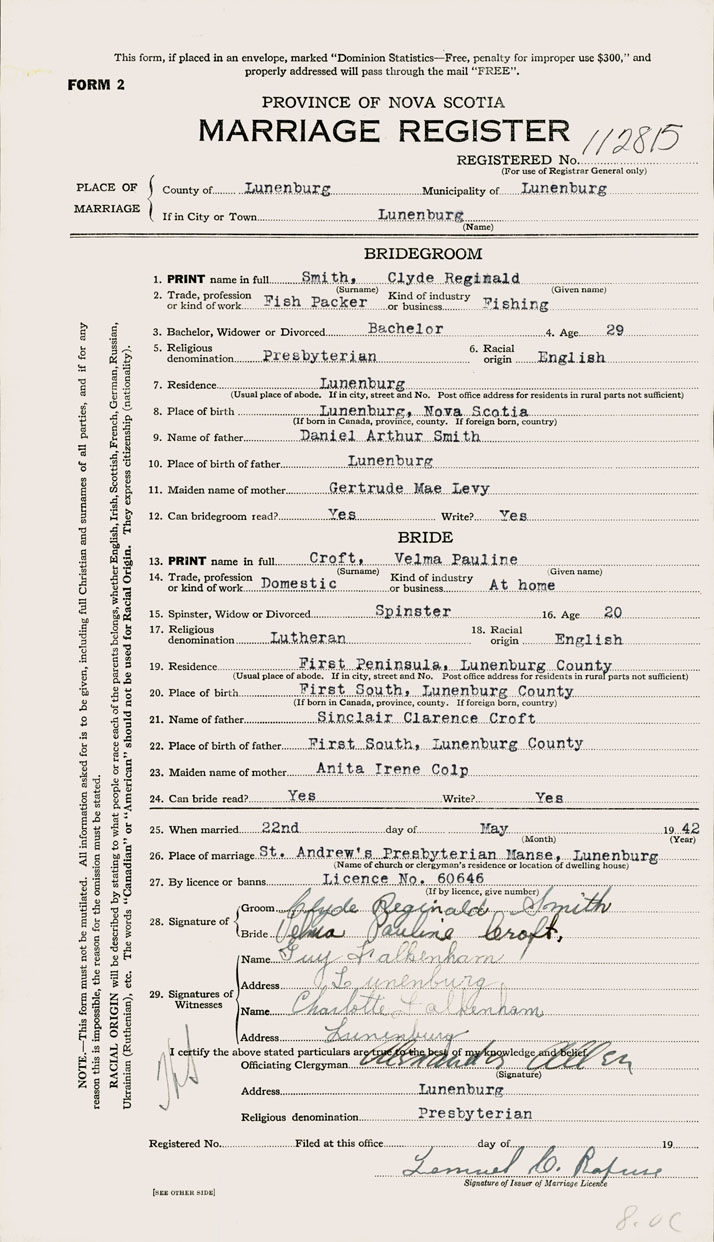 This form, if placed in an envelope, marked "Dominion Statistics—Free, penalty for improper use $300," and
properly addressed will pass through the mail "FREE".
FORM 2
PROVINCE OF NOVA SCOTIA
MARRIAGE REGISTER
REGISTERED No. 112815
(For use of Registrar General only)
PLACE OF MARRIAGE
County of Lunenburg Municipality of Lunenburg
If in City or Town Lunenburg
(Name)
BRIDEGROOM
1. PRINT name in full Smith, Clyde Reginald
(Surname) (Given name)
2. Trade, profession or kind of work Fish Packer Kind of industry or business Fishing
3. Bachelor, Widower or Divorced Bachelor 4. Age 29
5. Religious denomination Presbyterian 6. Racial origin English
7. Residence Lunenburg
(Usual place of abode. If in city, street and No. Post office address for residents in rural parts not sufficient)
8. Place of birth Lunenburg, Nova Scotia
(If born in Canada, province, county. If foreign born, country)
9. Name of father Daniel Arthur Smith
10. Place of birth of father Lunenburg
11. Maiden name of mother Gertrude Mae Levy
12. Can bridegroom read? Yes Write? Yes
BRIDE
13. PRINT name in full Croft, Velma Pauline
(Surname) (Given name)
14. Trade, profession or kind of work Domestic Kind of industry or business At home
15. Spinster, Widow or Divorced Spinster 16. Age 20
17. Religious denomination Lutheran 18. Racial origin English
19. Residence First Peninsula, Lunenburg County
(Usual place of abode. If in city, street and No. Post office address for residents in rural parts not sufficient)
20. Place of birth First South, Lunenburg County
(If born in Canada, province, county. If foreign born, country)
21. Name of father Sinclair Clarence Croft
22. Place of birth of father First South, Lunenburg County
23. Maiden name of mother Anita Irene Colp
24. Can bride read? Yes Write? Yes
25. When married 22nd day of May 19 42
(Month) (Year)
26. Place of marriage St. Andrew's Presbyterian Manse, Lunenburg
(Name of church or clergyman's residence or location of dwelling house)
27. By licence or banns Licence No. 60646
(If by licence, give number)
28. Signature of
Groom Clyde Reginald Smith
Bride Velma Pauline Croft,
29. Signatures of Witnesses
Name Guy Falkenham
Address Lunenburg
Name Charlotte Falkenham
Address Lunenburg
I certify the above stated particulars are true to the best of my knowledge and belief.
Officiating Clergyman Alexander Allen
(Signature)
Address Lunenburg
Religious denomination Presbyterian
Registered No. Filed at this office day of 19
Lemuel
Signature of Issuer of Marriage Licence
[SEE OTHER SIDE]
8.0C
NOTE.—This form must not be mutilated. All information asked for is to be given, including full Christian and surnames of all parties, and if for any
reason this is impossible, the reason for the omission must be stated.
RACIAL ORIGIN will be described by stating to what people or race each of the parents belongs, whether English, Irish, Scottish, French, German, Russian,
Ukrainian (Ruthenian), etc. The words "Canadian" or "American" should not be used for Racial Origin. They express citizenship (nationality).